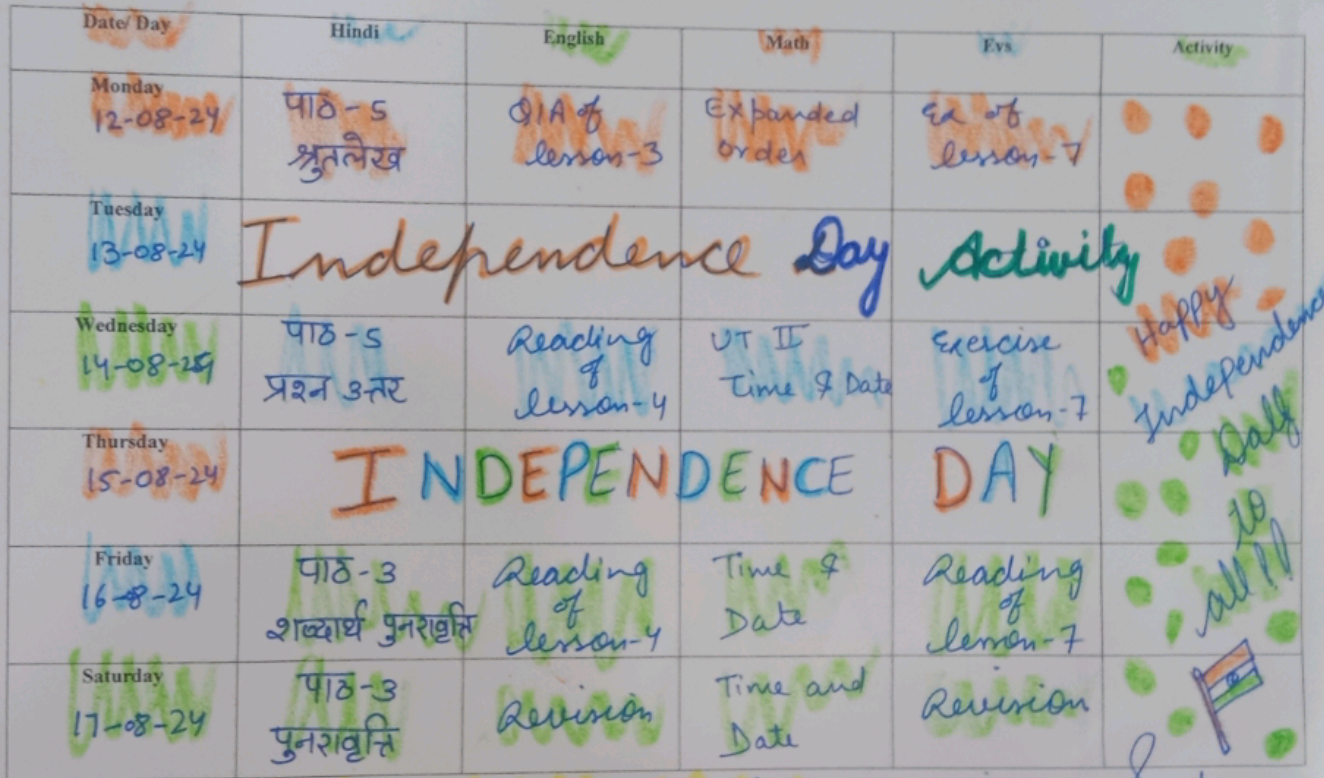 Date/ Day Hindi English Math Evs Activity
Monday
12-08-24
पाठ-5
श्रुतलेख
Q/A of
lesson-3
Expanded
order
Ex of
lesson-7
Tuesday
13-08-24
Independence Day Activity
Wednesday
14-08-24
पाठ-5
प्रश्न उत्तर
Reading
of
lesson-4
UT II
Time & Date
Exercise
of
lesson-7
Thursday
15-08-24
INDEPENDENCE DAY
Friday
16-08-24
पाठ-3
शब्दार्थ पुनरावृत्ति
Reading
of
lesson-4
Time &
Date
Reading
of
lesson-7
Saturday
17-08-24
पाठ-3
पुनरावृत्ति
Revision
Time and
Date
Revision
Happy
Independence
to
all!!